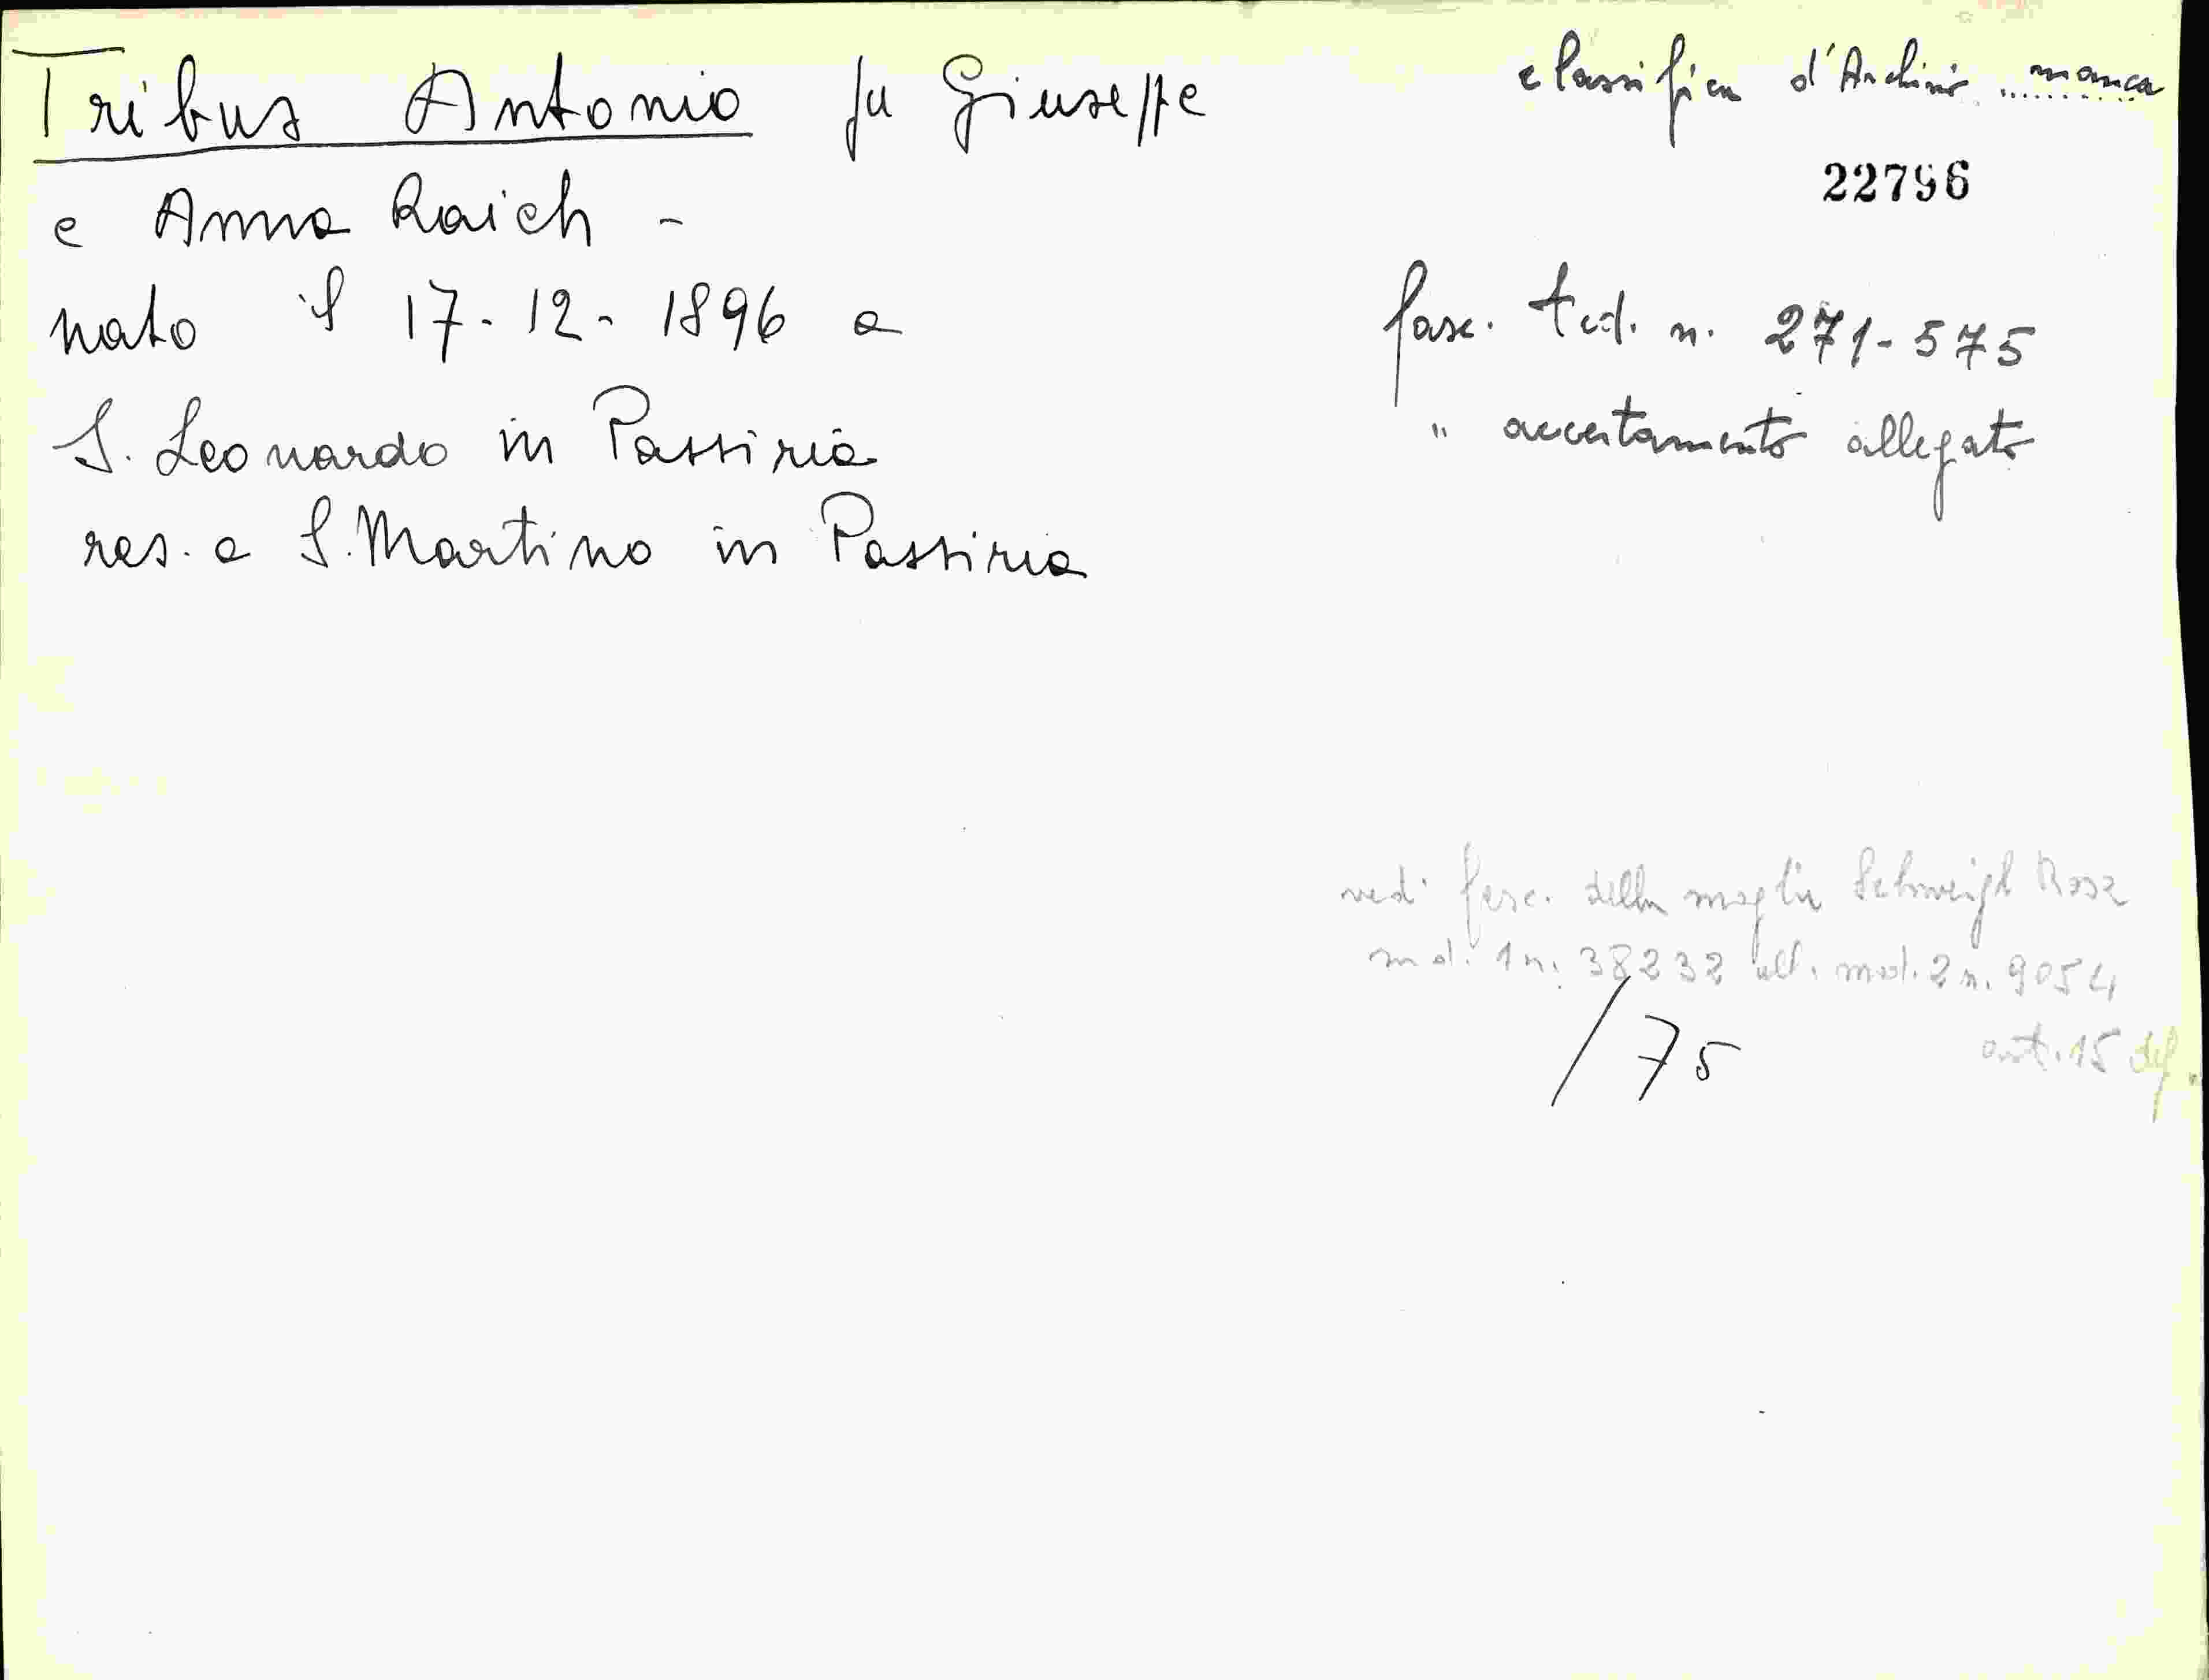 Tribus Antonio fu Giuseppe
e Anna Raich -
nato il 17-12-1896 a
S. Leonardo in Passiria
res. a S. Martino in Passiria
classifica d'Archivio manca
22796
fasc. ted. n. 271-575
" accertamento allegato
vedi fasc. della moglie Schweigl Rosa
mod. 1 n. 38232 all. mod. 2 n. 9054
art. 15 def.
/75